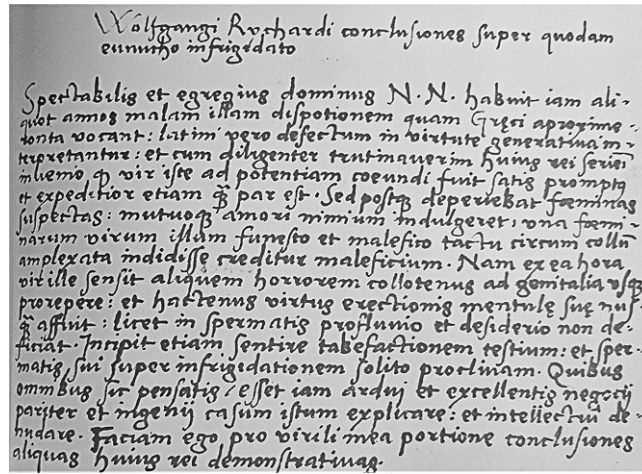 Wolfgangi Rychardi conclusiones super quodam
eunucho infrigidato
Spectabilis et egregius dominus N. N. habuit iam ali-
quot annos malam illam dispotionem quam Gręci aproxime-
ronta vocant: latini vero defectum in virtute generativa in-
terpretantur: et cum diligenter trutinaverim huius rei seriē
invenio, ꝙ vir iste ad potentiam coeundi fuit satis promptꝯ
et expeditior etiam ꝙ̃ par est. Sed postꝙ deperiebat fœminas
suspectas: mutuoqꝫ amori nimium indulgeret, una fœmi-
narum virum illum funesto et malefico tactu circum collū
amplexata indidisse creditur maleficium. Nam ex ea hora
vir ille sensit aliquem horrorem collotenus ad genitalia usqꝫ
prorepere: et hactenus virtus erectionis mentulę suę nus-
ꝙ̃ affuit: licet in spermatis profluvio et desiderio non de-
ficiat. Incipit etiam sentire tabefactionem testium: et sper-
matis sui super infrigedationem solito procliviam. Quibus
omnibus sic pensatis / esset iam ardui et excellentis negocij
pariter et ingenij casum istum explicare: et intellectui de-
nudare. Faciam ego pro virili mea portione conclusiones
aliquas huius rei demonstrativas.